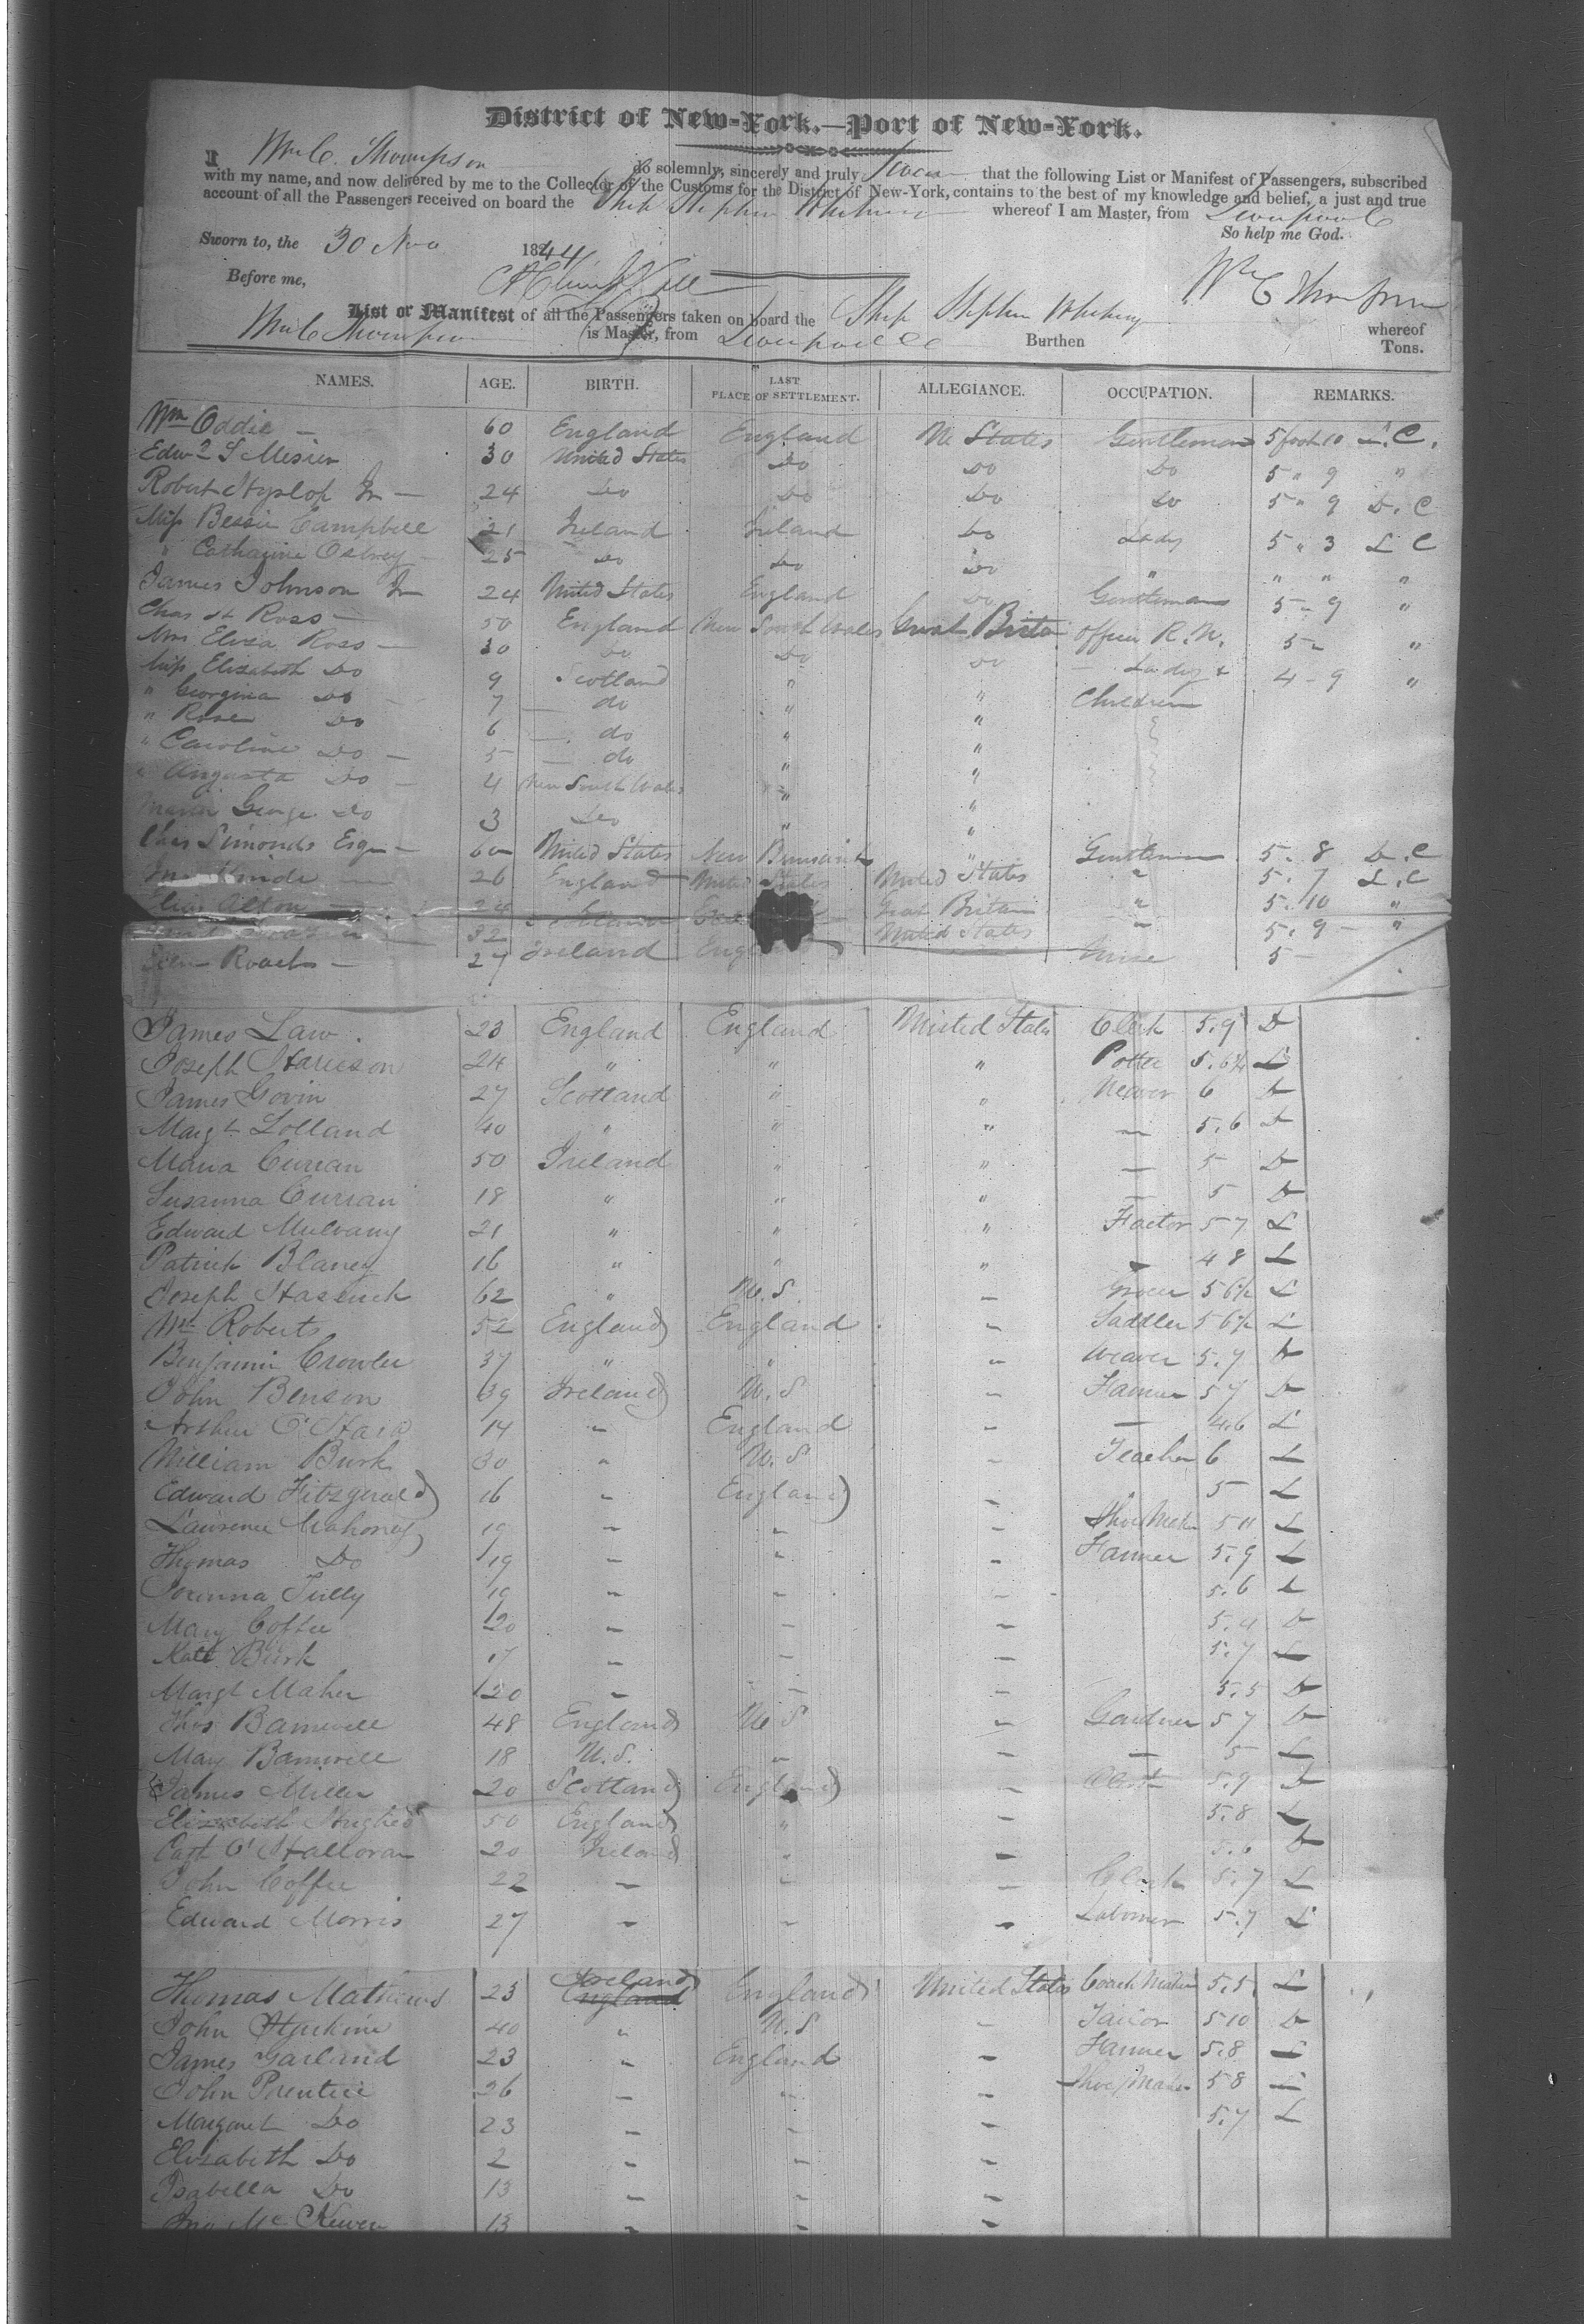 District of New-York.—Port of New-York.
I Wm C. Thompson do solemnly, sincerely and truly Swear that the following List or Manifest of Passengers, subscribed
with my name, and now delivered by me to the Collector of the Customs for the District of New-York, contains to the best of my knowledge and belief, a just and true
account of all the Passengers received on board the Ship Stephen Whitney whereof I am Master, from Liverpool
So help me God.
Sworn to, the 30 Nov 1844
Before me, Wm C Thompson
List or Manifest of all the Passengers taken on board the Ship Stephen Whitney whereof
Wm C Thompson is Master, from Liverpool Burthen Tons.
NAMES. AGE. BIRTH. LAST PLACE OF SETTLEMENT. ALLEGIANCE. OCCUPATION. REMARKS.
Wm Oddie 60 England England U States Gentleman 5 foot 10 L. C.
Edwd S Mesier 30 United States Do Do Do 5 " 9 "
Robert Hyslop Jr 24 Do Do Do Do 5 " 9 D. C
Miss Bessie Campbell 21 Ireland Ireland Do Lady 5 " 3 L C
" Catharine 25 Do Do Do " " " "
James Johnson Jr 24 United States England Do Gentleman 5 - 9 "
Chas Ross 50 England New South Wales Great Britain Officer R. N. 5 - "
Mrs Eliza Ross 30 Do Do Do Lady & 4 - 9 "
Miss Elizabeth Do 9 Scotland " " Children
" Georgina Do 7 do " "
" Do 6 do " "
" Caroline Do 5 do " "
" Augusta Do 4 New South Wales " "
George Do 3 Do " "
Chas Simonds Esqr 60 United States New Brunswick " Gentleman 5 . 8 D. C
26 England United States United States " 5 . 7 L. C
24 Great Britain " 5 . 10 "
32 United States " 5 . 9 "
Roach 27 Ireland Nurse 5 -
James Law 23 England England United States Clerk 5.9 D
Joseph Harrison 24 " " " Potter 5.6½ L
James Govin 27 Scotland " " Weaver 6 D
Margt Lolland 40 " " " — 5.6 D
Maria Curran 50 Ireland " " — 5 D
Susanna Curran 18 " " " — 5 D
Edward Mulvany 21 " " " Factor 5 7 L
Patrick Blaney 16 " " " — 4 8 L
Joseph 62 " U. S — Grocer 5 6½ L
Wm Roberts 52 England England — Saddler 5 6½ L
Benjamin Crowler 37 " " — Weaver 5.7 D
John Benson 39 Ireland U. S — Farmer 5 7 D
Arthur O'Hara 14 " England — — 4.6 L
William Burk 30 " U. S — Teacher 6 L
Edward Fitzgerald 16 " England — 5 L
Laurence Mahoney 19 " " — Shoe Maker 5 11 L
Thomas Do 19 " " — Farmer 5.9 L
Tully 19 " " — 5.6 L
Mary Coffee 20 " " — 5.4 D
Kate Burk 17 " " — 5.7 L
Margt Maher 20 " " — 5.5 D
Thos Barnwell 48 England U S — Gardner 5 7 D
Mary Barnwell 18 U. S. " — — 5 L
James Miller 20 Scotland England — Clerk 5.9 D
Elizabeth Hughes 50 England " — 5.8 L
Cath O'Halloran 20 Ireland " — 5.6 D
John Coffee 22 " " — Clerk 5.7 L
Edward Morris 27 " " — Laborer 5.7 L
Thomas Mathews 23 Ireland England England United States Coach Maker 5.5 L
John 40 " U. S — Tailor 5 10 D
James Garland 23 " England — Farmer 5.8 L
John Prentice 26 " " — Shoe Maker 5 8 L
Margaret Do 23 " " — 5.7 L
Elizabeth Do 2 " " —
Isabella Do 13 " " —
Jno Mc Kewen 13 " " —